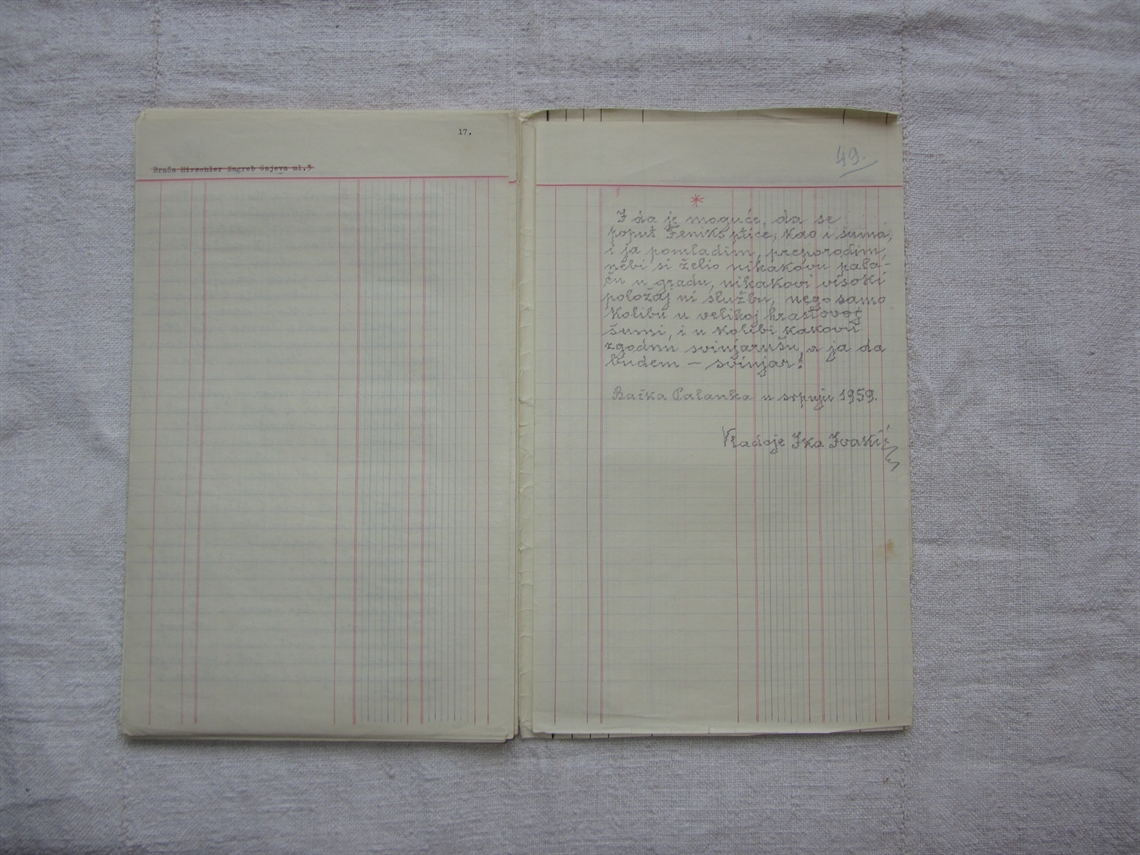 17.
Braća Hirschler Zagreb Gajeva ul.5
49.
*
I da je moguće, da se
poput Feniks ptice, kao i šuma,
i ja pomladim, preporodim,
nebi si želio nikakovu pala-
ču u gradu, nikakovi visoki
položaj ni službu, nego samo
kolibu u velikoj hrastovoj
šumi, i u kolibi kakovu
zgodnu svinjarušu a ja da
budem — svinjar!
Bačka Palanka u srpnju 1959.
Vladoje Ika Ivakić